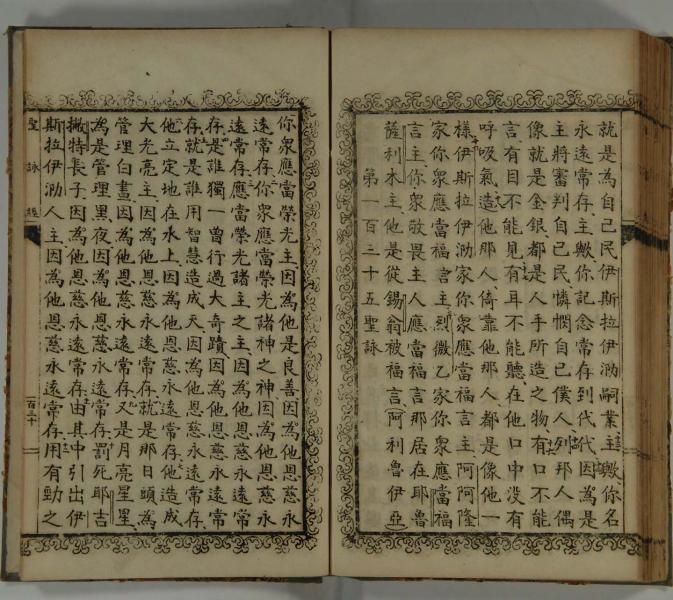 就是為自己民伊斯拉伊泐嗣業主歟你名
永遠常存主歟你記念常存到代代因為是
主將審判自己民憐憫自己僕人列邦人偶
像就是金銀都是人手所造之物有口不能
言有目不能見有耳不能聽在他口中没有
呼吸氣造他那人倚靠他那人都是像他一
樣伊斯拉伊泐家你衆應當福言主阿阿隆
家你衆應當福言主烈微乙家你衆應當福
言主你衆敬畏主人應當福言那居在耶魯
薩利木主他是從錫翁被福言阿利魯伊亞
第一百三十五聖詠
你衆應當榮光主因為他是良善因為他恩慈永
遠常存你衆應當榮光諸神之神因為他恩慈永
遠常存應當榮光諸主之主因為他恩慈永遠常
存是誰獨一曾行過大奇蹟因為他恩慈永遠常
存就是誰用智慧造成天因為他恩慈永遠常存
他立定地在水上因為他恩慈永遠常存他造成
大光亮主因為他恩慈永遠常存就是那日頭為
管理白晝因為他恩慈永遠常存又是月亮星星
為是管理黑夜因為他恩慈永遠常存罰死耶吉
撒特長子因為他恩慈永遠常存由其中引出伊
斯拉伊泐人主因為他恩慈永遠常存用有勁之
聖詠經
百三十